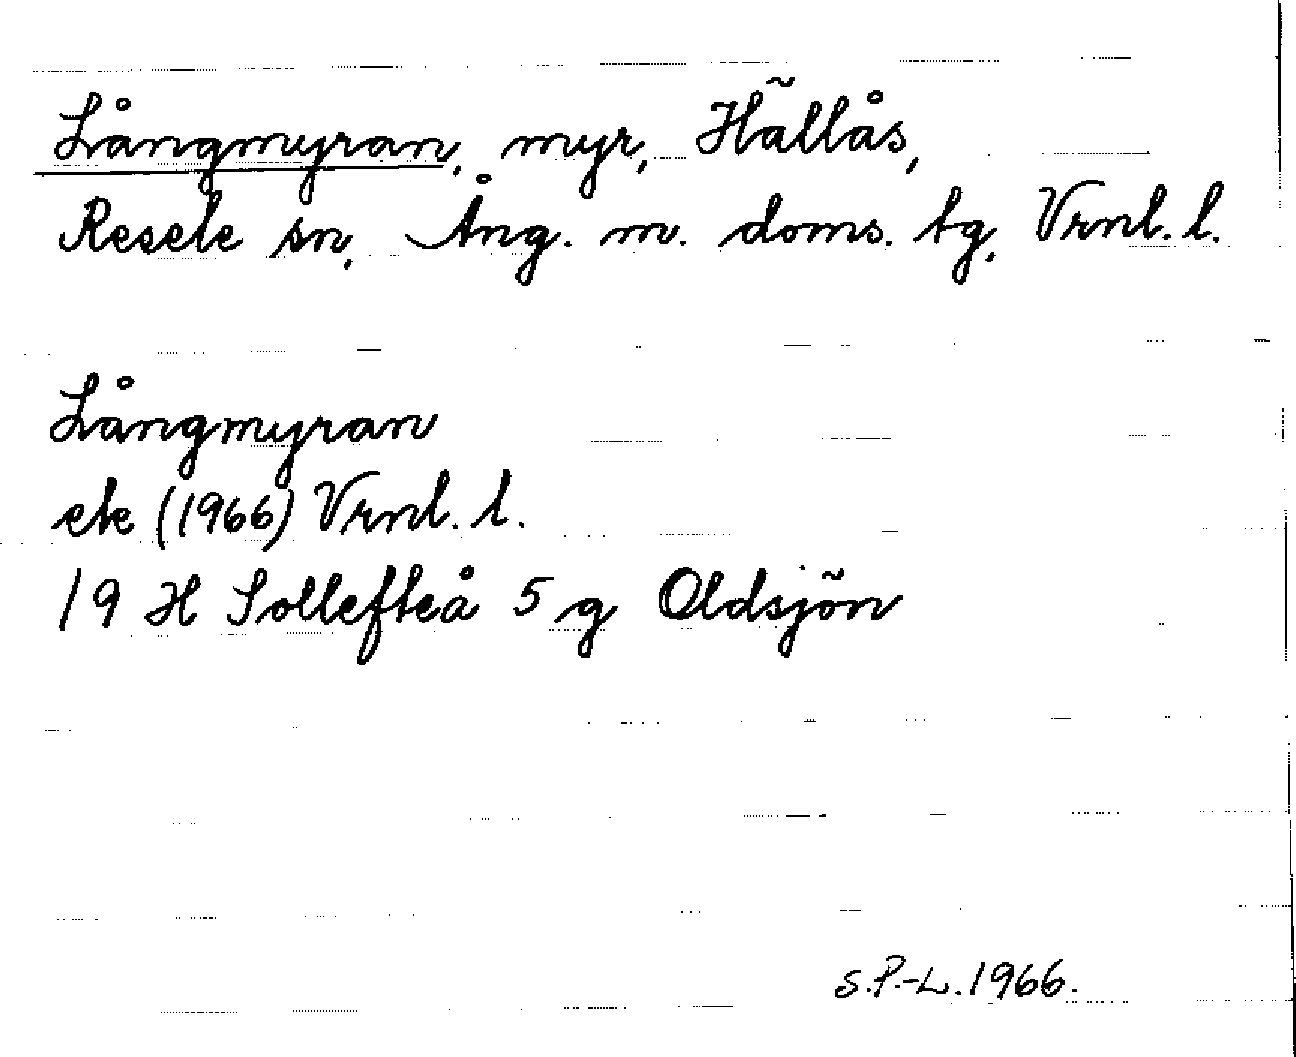 Långmyran, myr, Hällås,
Resele sn, Ång. m. doms. tg, Vrnl. l.
Långmyran
ek (1966) Vrnl. l.
19 H Sollefteå 5 g Oldsjön
S.P.-L. 1966.